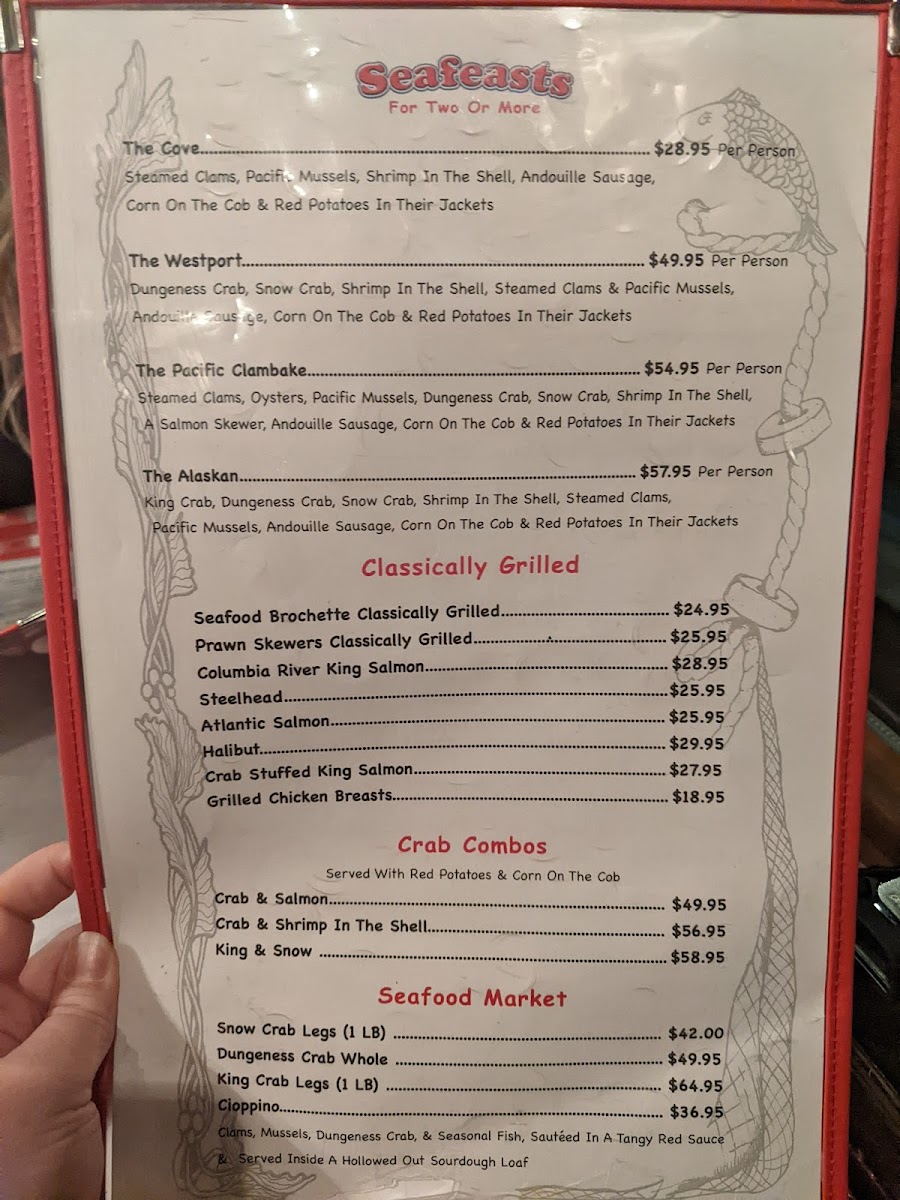 Seafeasts
For Two Or More
The Cove........ $28.95 Per Person
Steamed Clams, Pacific Mussels, Shrimp In The Shell, Andouille Sausage,
Corn On The Cob & Red Potatoes In Their Jackets
The Westport........ $49.95 Per Person
Dungeness Crab, Snow Crab, Shrimp In The Shell, Steamed Clams & Pacific Mussels,
Andouille Sausage, Corn On The Cob & Red Potatoes In Their Jackets
The Pacific Clambake........ $54.95 Per Person
Steamed Clams, Oysters, Pacific Mussels, Dungeness Crab, Snow Crab, Shrimp In The Shell,
A Salmon Skewer, Andouille Sausage, Corn On The Cob & Red Potatoes In Their Jackets
The Alaskan........ $57.95 Per Person
King Crab, Dungeness Crab, Snow Crab, Shrimp In The Shell, Steamed Clams,
Pacific Mussels, Andouille Sausage, Corn On The Cob & Red Potatoes In Their Jackets
Classically Grilled
Seafood Brochette Classically Grilled........ $24.95
Prawn Skewers Classically Grilled........ $25.95
Columbia River King Salmon........ $28.95
Steelhead........ $25.95
Atlantic Salmon........ $25.95
Halibut........ $29.95
Crab Stuffed King Salmon........ $27.95
Grilled Chicken Breasts........ $18.95
Crab Combos
Served With Red Potatoes & Corn On The Cob
Crab & Salmon........ $49.95
Crab & Shrimp In The Shell........ $56.95
King & Snow ........ $58.95
Seafood Market
Snow Crab Legs (1 LB) ........ $42.00
Dungeness Crab Whole ........ $49.95
King Crab Legs (1 LB) ........ $64.95
Cioppino........ $36.95
Clams, Mussels, Dungeness Crab, & Seasonal Fish, Sautéed In A Tangy Red Sauce
& Served Inside A Hollowed Out Sourdough Loaf